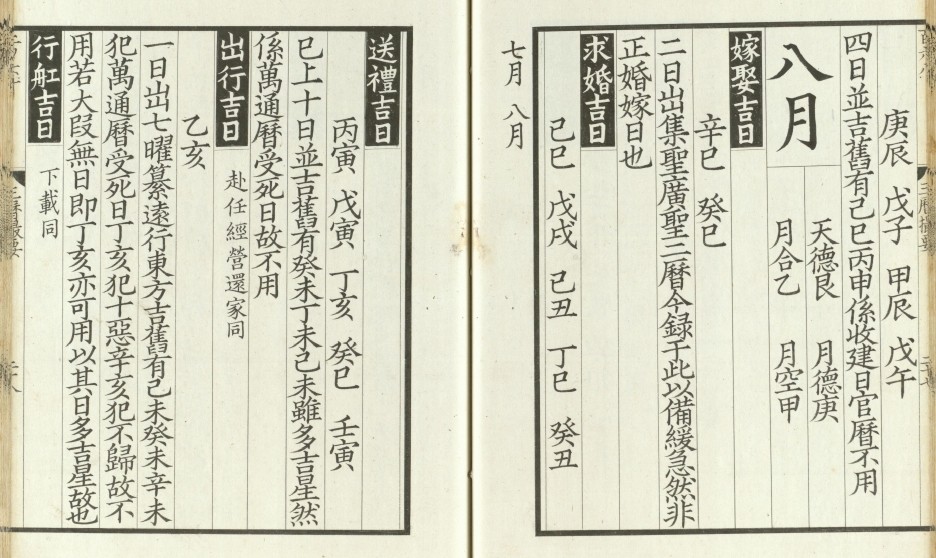 庚辰 戊子 甲辰 戊午
四日並吉舊有己巳丙申係收建日官曆不用
八月
天德艮 月德庚
月合乙 月空甲
嫁娶吉日
辛巳 癸巳
二日出集聖廣聖三曆今録于此以備緩急然非
正婚嫁日也
求婚吉日
己巳 戊戌 己丑 丁巳 癸丑
七月 八月
送禮吉日
丙寅 戊寅 丁亥 癸巳 壬寅
已上十日並吉舊有癸未丁未己未雖多吉星然
係萬通曆受死日故不用
出行吉日
赴任經營還家同
乙亥
一日出七曜纂遠行東方吉舊有己未癸未辛未
犯萬通曆受死日丁亥犯十惡辛亥犯不歸故不
用若大叚無日即丁亥亦可用以其日多吉星故也
行舡吉日
下載同